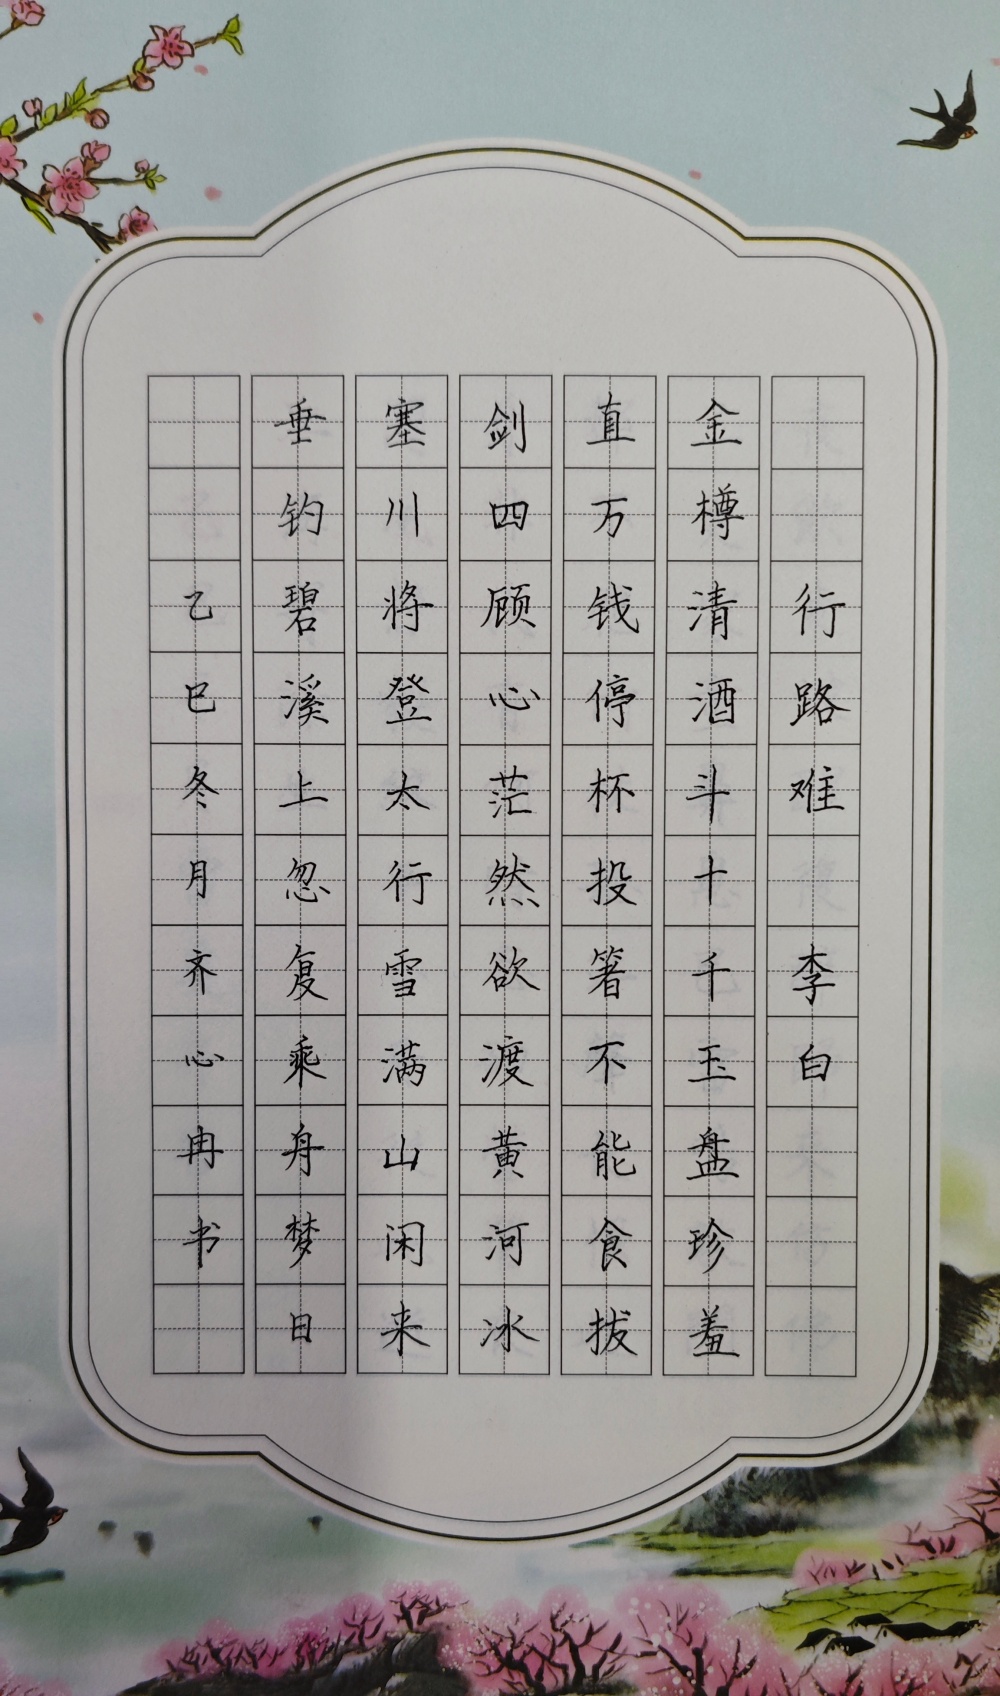 行路难 李白
金樽清酒斗十千玉盘珍羞
直万钱停杯投箸不能食拔
剑四顾心茫然欲渡黄河冰
塞川将登太行雪满山闲来
垂钓碧溪上忽复乘舟梦日
乙巳冬月齐心冉书